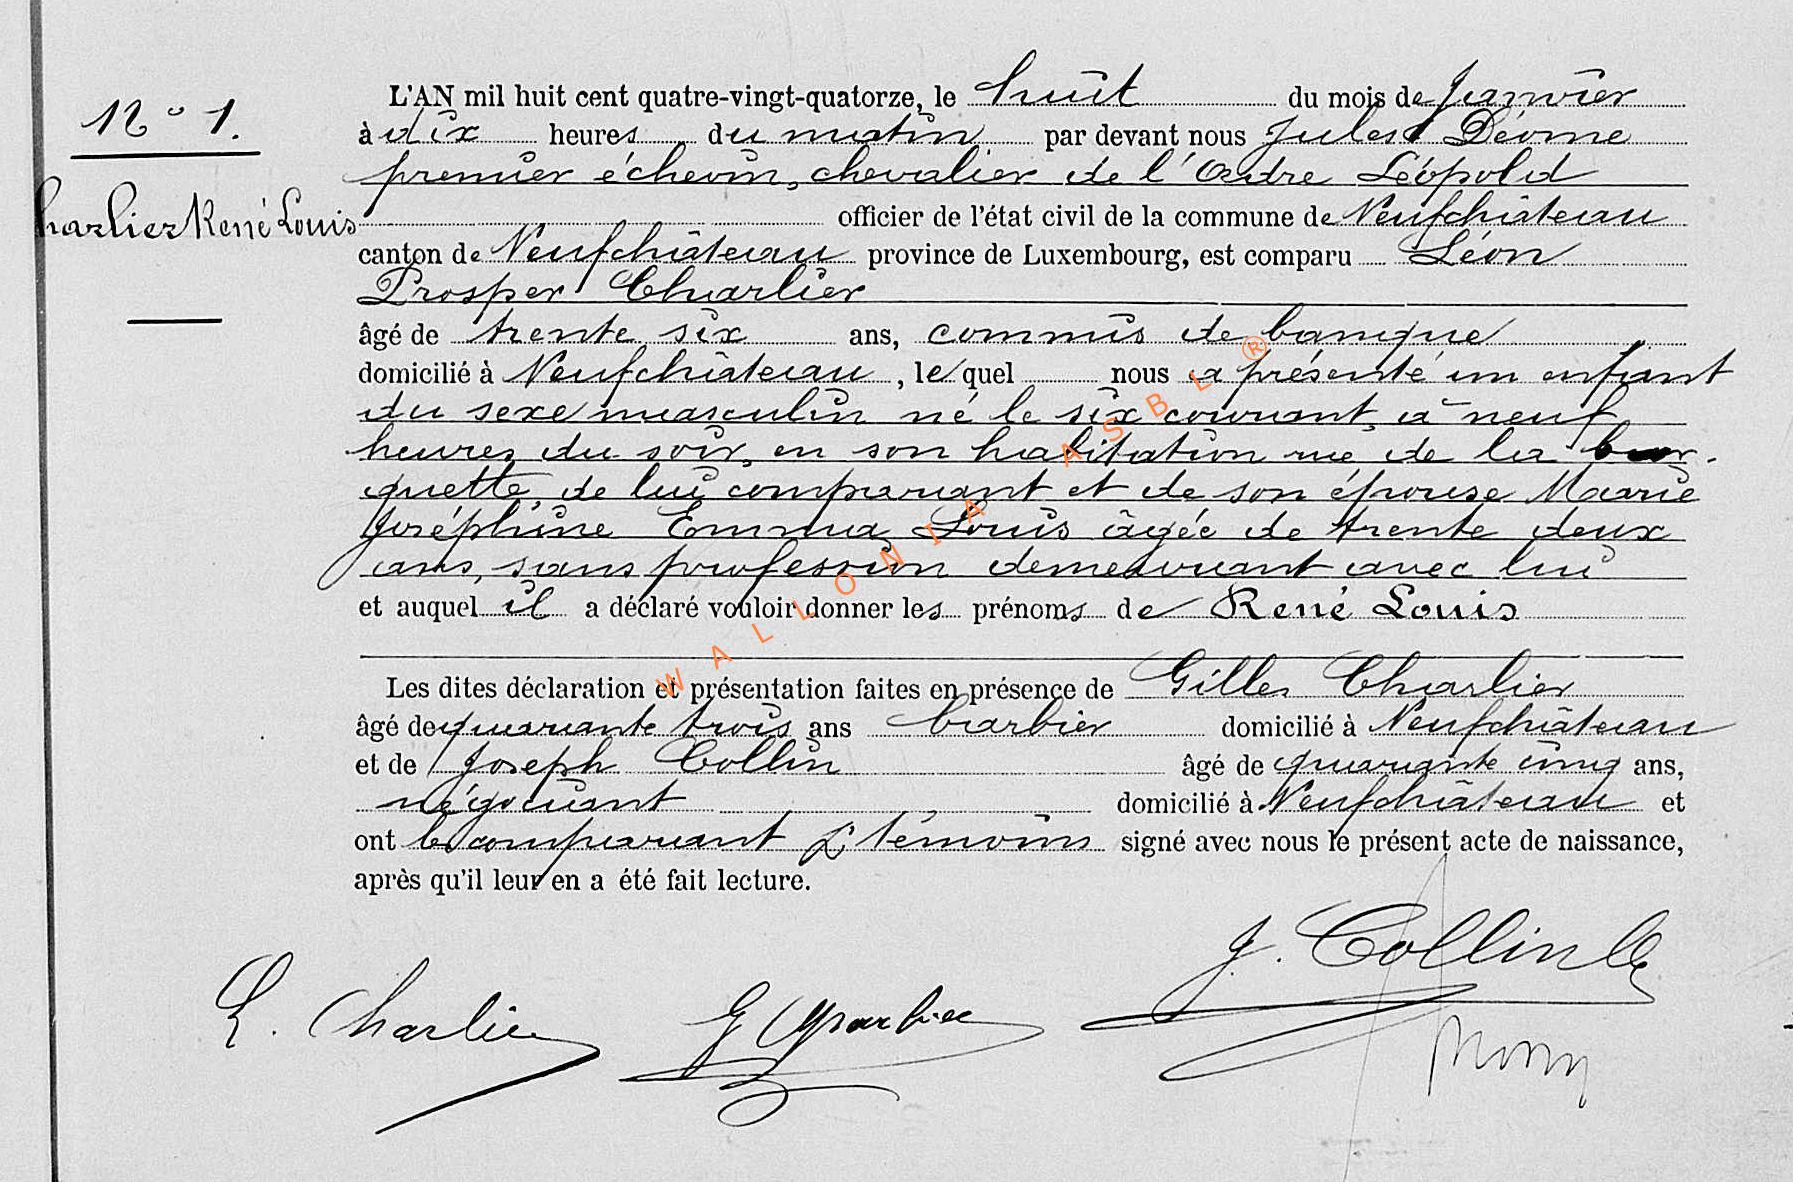 N° 1.
Charlier René Louis
L'AN mil huit cent quatre-vingt-quatorze, le huit du mois de Janvier
à dix heures du matin par devant nous Jules Déome
premier échevin, chevalier de l'Ordre Léopold
officier de l'état civil de la commune de Neufchâteau
canton de Neufchâteau province de Luxembourg, est comparu Léon
Prosper Charlier
âgé de trente six ans, commis de banque
domicilié à Neufchâteau, lequel nous a présenté un enfant
du sexe masculin né le six courant, à neuf
heures du soir, en son habitation rue de la
quette, de lui comparant et de son épouse Marie
Joséphine Emma Louis âgée de trente deux
ans, sans profession demeurant avec lui
et auquel il a déclaré vouloir donner les prénoms de René Louis
Les dites déclaration et présentation faites en présence de Gilles Charlier
âgé de quarante trois ans barbier domicilié à Neufchâteau
et de Joseph Collin âgé de quarante cinq ans,
négociant domicilié à Neufchâteau et
ont les comparant & témoins signé avec nous le présent acte de naissance,
après qu'il leur en a été fait lecture.
J. Collin
L. Charlier
G Charlier
WALLONIA ASBL ®